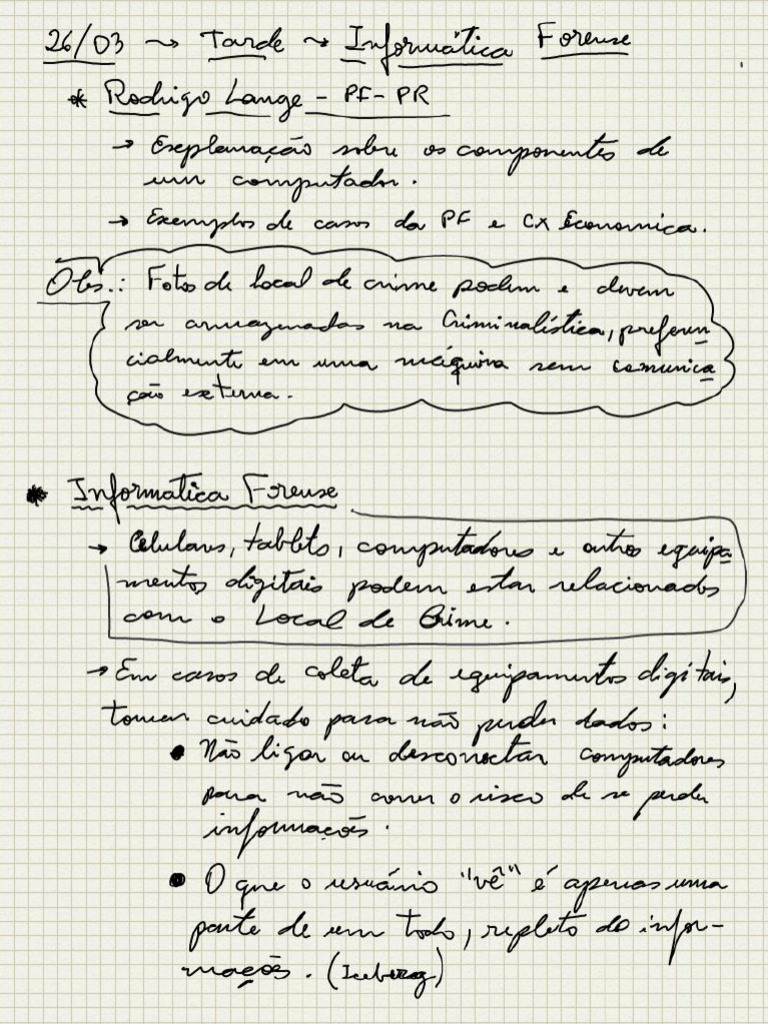 26/03 → Tarde → Informática Forense
* Rodrigo Lange - PF-PR
→ Explanação sobre os componentes de
um computador.
→ Exemplos de casos da PF e CX Economica.
Obs.: Fotos de local de crime podem e devem
ser armazenadas na Criminalística, preferen
cialmente em uma máquina sem comunica
ção externa.
* Informatica Forense
→ Celulares, tablets, computadores e outros equipa
mentos digitais podem estar relacionados
com o Local de Crime.
→ Em casos de coleta de equipamentos digitais,
tomar cuidado para não perder dados:
• Não ligar ou desconectar computadores
para não correr o risco de se perder
informações.
• O que o usuário "vê" é apenas uma
parte de um todo, repleto de infor-
mações. (Iceberg)